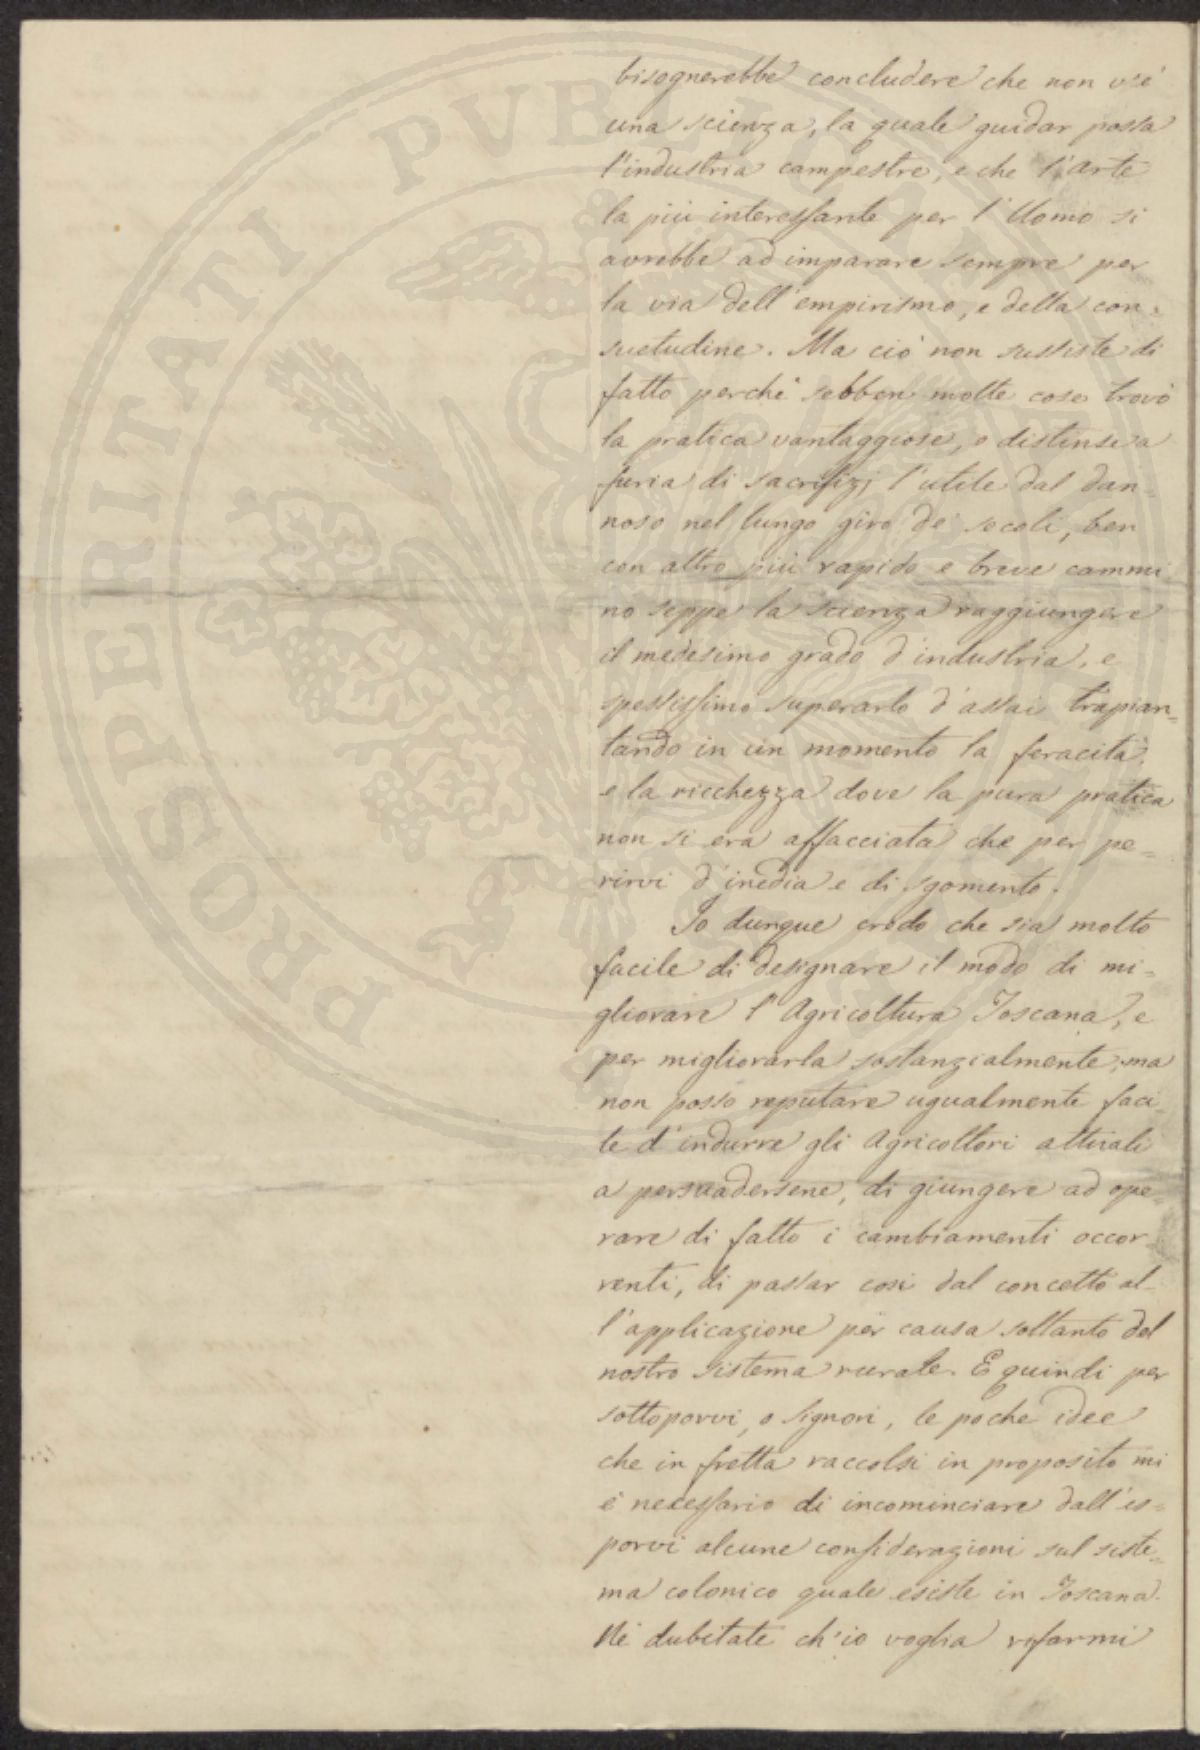 PROSPERITATI PUBLICAE
bisognerebbe concludere che non v'è
una scienza, la quale guidar possa
l'industria campestre, e che l'arte
la più interessante per l'Uomo si
avrebbe ad imparare sempre per
la via dell'empirismo, e della con-
suetudine. Ma ciò non sussiste di
fatto perchè sebben molte cose trovò
la pratica vantaggiose, e distinse a
furia di sacrifizj l'utile dal dan=
noso nel lungo giro de' secoli, ben
con altro più rapido e breve cammi
no seppe la scienza raggiungere
il medesimo grado d'industria, e
spessissimo superarlo d'assai trapian=
tando in un momento la feracità,
e la ricchezza dove la pura pratica
non si era affacciata che per pe=
rirvi d'inedia e di sgomento.
Io dunque credo che sia molto
facile di designare il modo di mi=
gliorare l'Agricoltura Toscana, e
per migliorarla sostanzialmente; ma
non posso reputare ugualmente faci
le d'indurre gli Agricoltori attuali
a persuadersene, di giungere ad ope=
rare di fatto i cambiamenti occor=
renti, di passar così dal concetto al-
l'applicazione per causa soltanto del
nostro sistema rurale. E quindi per
sottoporvi, o Signori, le poche idee
che in fretta raccolsi in proposito mi
è necessario di incominciare dall'es=
porvi alcune considerazioni sul siste=
ma colonico quale esiste in Toscana.
Nè dubitate ch'io voglia rifarmi